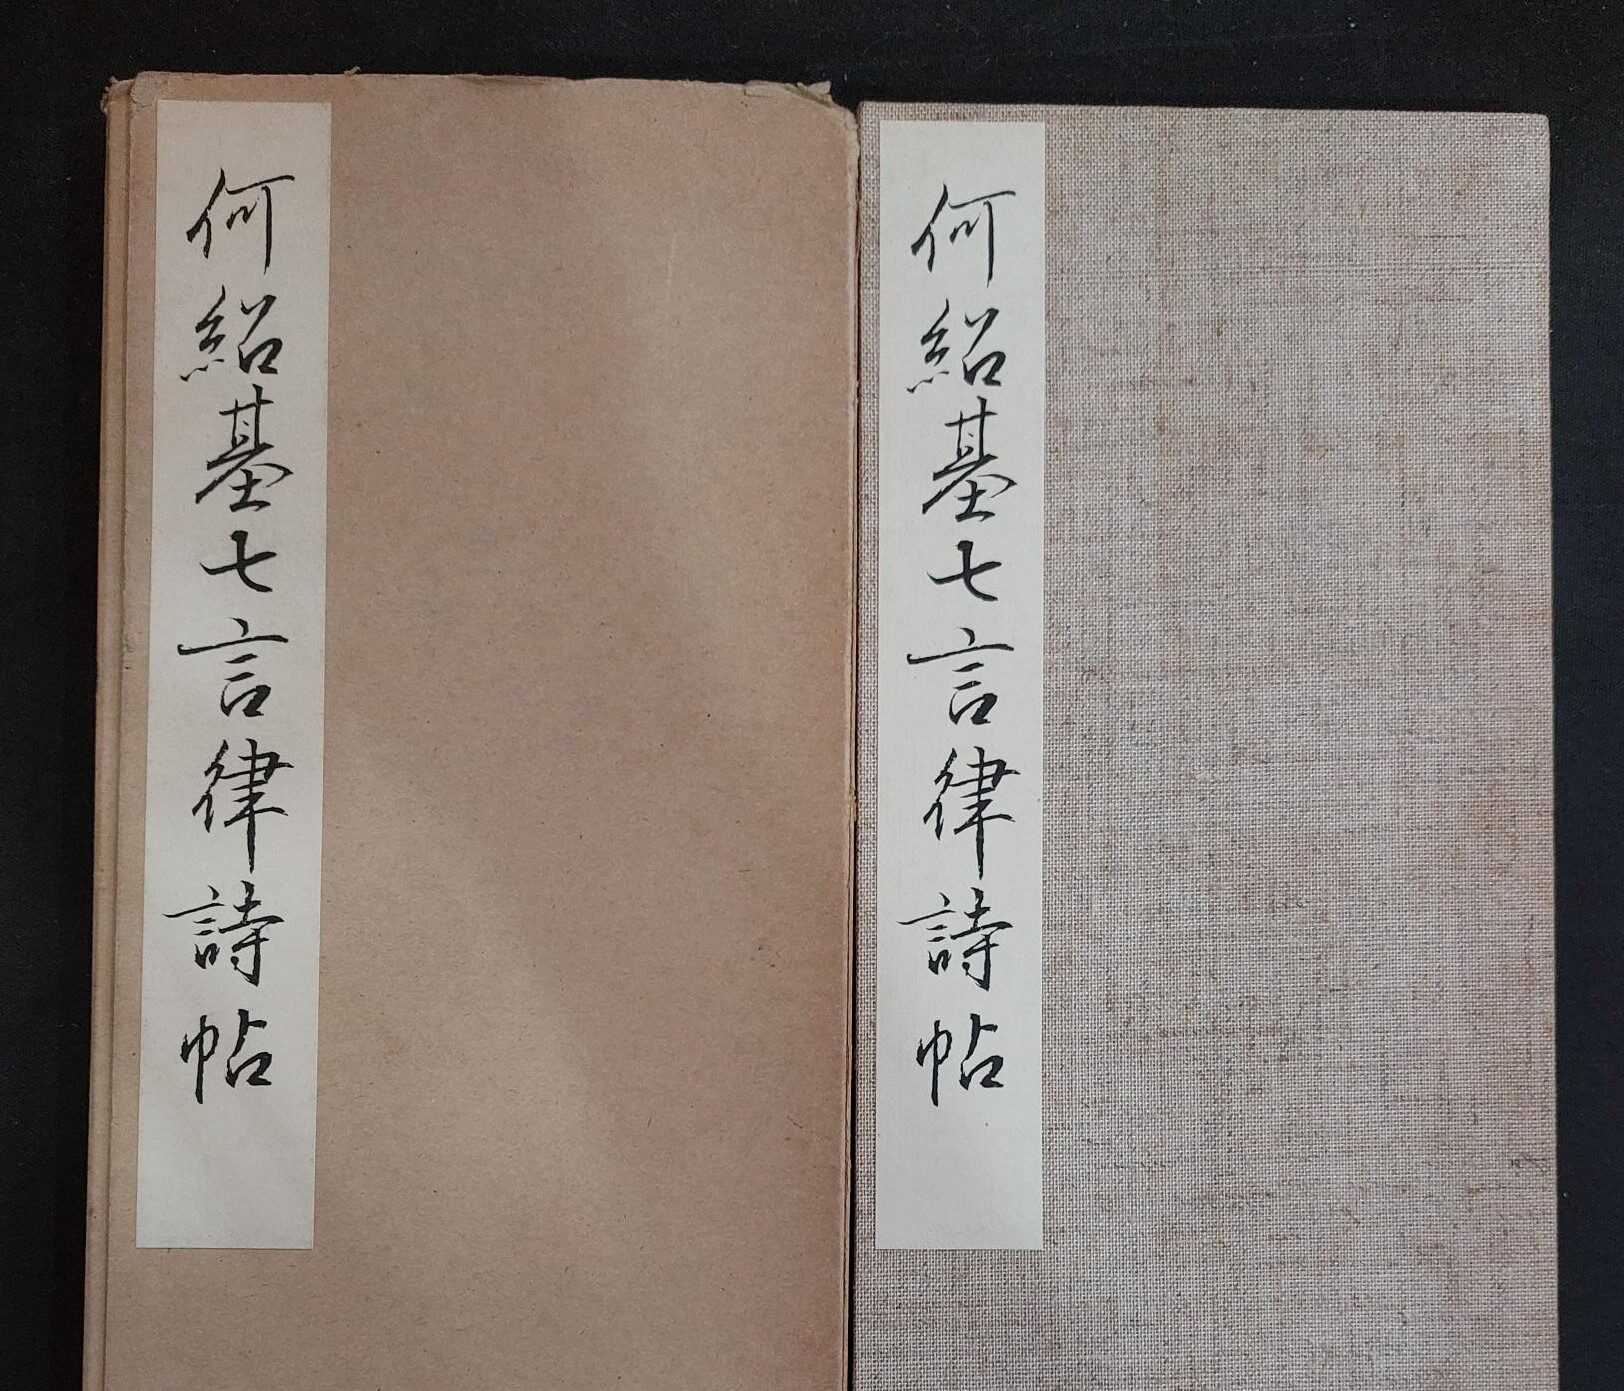 何紹基七言律詩帖
何紹基七言律詩帖